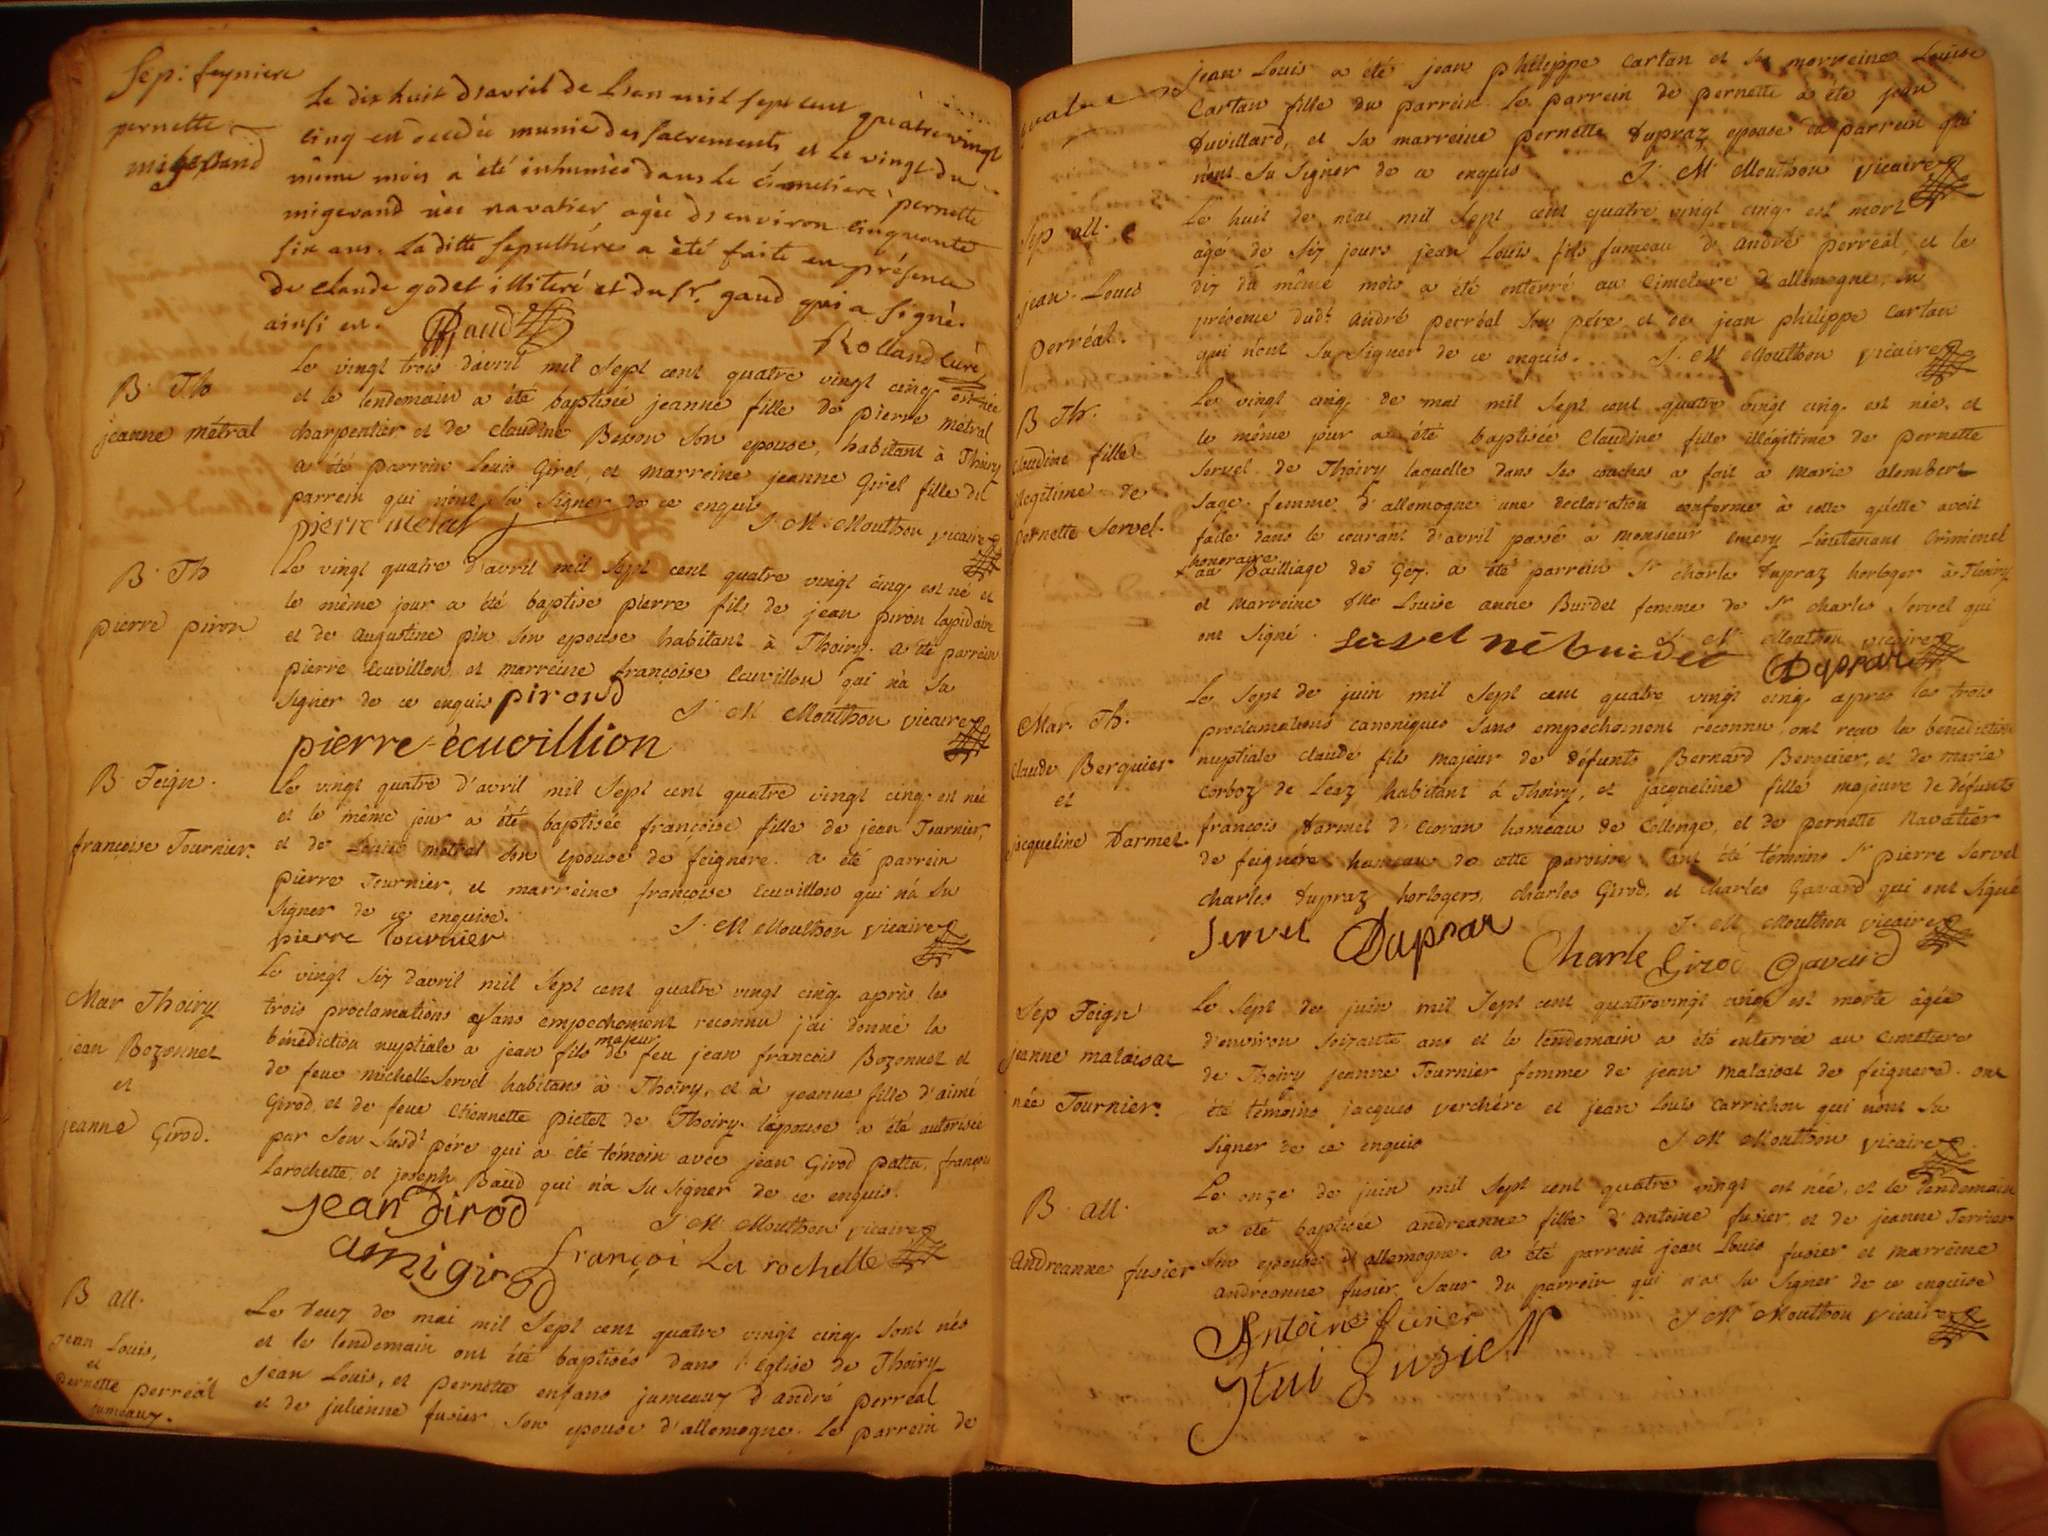 Sep: feyniere
pernette
migerand
Le dix huit d'avril de L'an mil sept cent quatre vingt
cinq est decedée munie des sacrements et le vingt du
même mois a été inhumée dans le cimetiere pernette
migerand née navatier agée d'environ cinquante
six ans. La ditte sepulture a été faite en présence
de claude godet illiteré et du sr. gaud qui a signé.
ainsi en.
Gaud
Rolland curé
B. Th
jeanne métral
Le vingt trois d'avril mil sept cent quatre vingt cinq. est née
et le lendemain a été baptisée jeanne fille de pierre métral
charpentier et de claudine Besson son epouse, habitant à Thoiry
a été parrein Louis Girel, et marreine jeanne Girel fille du
parrein qui n'ont su signer de ce enquis
pierre metral
J. M. Mouthon vicaire
B. Th
pierre piron
Le vingt quatre d'avril mil sept cent quatre vingt cinq. est né et
le même jour a été baptise pierre fils de jean piron lapidaire
et de augustine pin son epouse habitant à Thoiry. a été parrein
pierre Ecuvillon, et marreine françoise Ecuvillon qui n'a su
signer de ce enquis pirond
J. M Mouthon vicaire
pierre ècuvillion
B. Feign.
françoise Tournier.
Le vingt quatre d'avril mil sept cent quatre vingt cinq. est née
et le même jour a été baptisée françoise fille de jean Tournier,
et de Louise métral son epouse de feignere. a été parrein
pierre Tournier, et marreine françoise Ecuvillon qui n'a su
signer de ce enquise.
J. M Mouthon vicaire
pierre tournier
Mar Thoiry
jean Bozonnet
et
jeanne Girod.
Le vingt six d'avril mil sept cent quatre vingt cinq. après les
trois proclamations et sans empechement reconnu j'ai donné la
bénédiction nuptiale a jean fils majeur de feu jean francois Bozonnet et
de feue michelle Servel habitans à Thoiry, et à jeanne fille d'aimé
Girod, et de feue Etiennette pictet de Thoiry. l'epouse a été autorisée
par son susdt pére qui a été témoin avec jean Girod pattu, françois
Larochette, et joseph Baud qui n'a su signer de ce enquis.
jean Girod
J. M. Mouthon vicaire
amigirod
françoi La rochette
B all.
jean Louis,
et
pernette perréal
jumeaux.
Le deux de mai mil sept cent quatre vingt cinq. sont nés
et le lendemain ont été baptisés dans l'église de Thoiry
jean Louis, et pernette enfans jumeaux d'andre perréal
et de julienne fusier son epouse d'allemogne. Le parrein de
jean Louis a été jean philippe Cartan et sa marreine Louise
Cartan fille du parrein. Le parrein de pernette a été jean
Duvillard, et sa marreine pernette Dupraz epouse du parrein qui
n'ont su signer de ce enquis
J. M Mouthon vicaire
Sep all.
jean-Louis
perréal.
Le huit de mai mil sept cent quatre vingt cinq. est mort
âgé de six jours jean Louis fils jumeau d'andré perréal, et le
dix du même mois a été enterré au cimetiere d'allemogne, en
présence dudt. andré perréal son pére, et de jean philippe Cartan
qui n'ont su signer de ce enquis.
J. M Mouthon vicaire
B Th.
claudine fille
illegitime de
pernette servel.
Le vingt cinq. de mai mil sept cent quatre vingt cinq. est née, et
le même jour a été baptisée Claudine fille illégitime de pernette
servel de Thoiry laquelle dans ses couches a fait a marie alembert
sage-femme d'allemogne une declaration conforme à celle qu'elle avoit
faite dans le courant d'avril passé a monsieur emery Lieutenant Criminel
honoraire
au Bailliage de Gex. a été parrein sr charles Dupraz horloger à Thoiry
et marreine dlle Louise anne Burdet femme de sr charles servel qui
ont signé.
J. M Mouthon vicaire
servel né burdet
Dupraz
Mar. Th.
Claude Berquier
et
jacqueline Darmel.
Le sept de juin mil sept cent quatre vingt cinq. apres les trois
proclamations canoniques sans empechement reconnu ont reçu la bénédiction
nuptiale claude fils majeur de défunts Bernard Berquier, et de marie
Corboz de Léaz habitant à Thoiry, et jacqueline fille majeure de défunts
francois Darmel d'Ecoran hameau de Collonge, et de pernette Navatier
de feignére hameau de cette paroisse. ont été témoins sr pierre servel
charles Dupraz horlogers, charles Girod, et charles Gavard qui ont signé
J. M Mouthon vicaire
Servel Dupraz Charle Girod Gavard
Sep Feign
jeanne malaisat
née Tournier.
Le sept de juin mil sept cent quatrevingt cinq. est morte âgée
d'environ soixante ans et le lendemain a été enterrée au cimetiere
de Thoiry jeanne Tournier femme de jean malaisat de feignere. ont
été témoins jacques verchére et jean Louis carrichon qui n'ont su
signer de ce enquis
J. M Mouthon vicaire
B. all.
andreanne fusier
Le onze de juin mil sept cent quatre vingt est née, et le lendemain
a été baptisée andreanne fille d'antoine fusier, et de jeanne Terrier
son epouse d'allemogne. a été parrein jean Louis fusier et marreine
andreanne fusier sœur du parrein qui n'a su signer de ce enquise
J M Mouthon vicaire
Antoine fusier